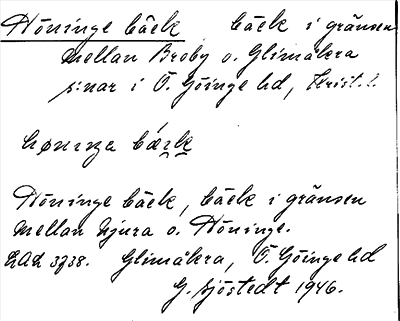 Höninge bäck bäck i gränsen
mellan Broby o. Glimåkra
s:nar i Ö. Göinge hd, Krist. l.
hønıŋa bæk
Höninge bäck, bäck i gränsen
mellan Njura o. Höninge.
LAL 3738. Glimåkra, Ö. Göinge hd
G. Sjöstedt 1946.